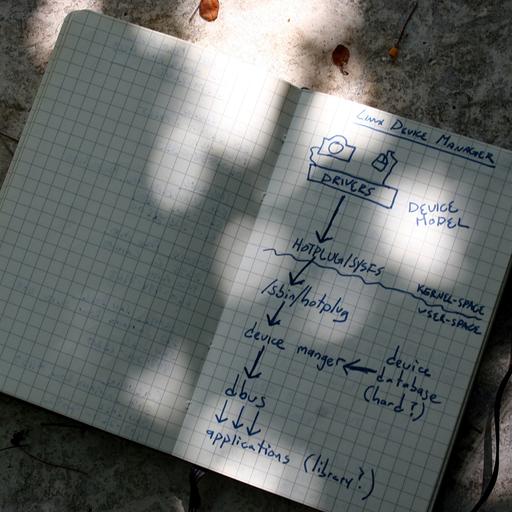 LINUX DEVICE MANAGER
DRIVERS
DEVICE
MODEL
HOTPLUG/SYSFS
KERNEL-SPACE
USER-SPACE
/sbin/hotplug
device manger
device
database
(hard?)
dbus
applications (library?)